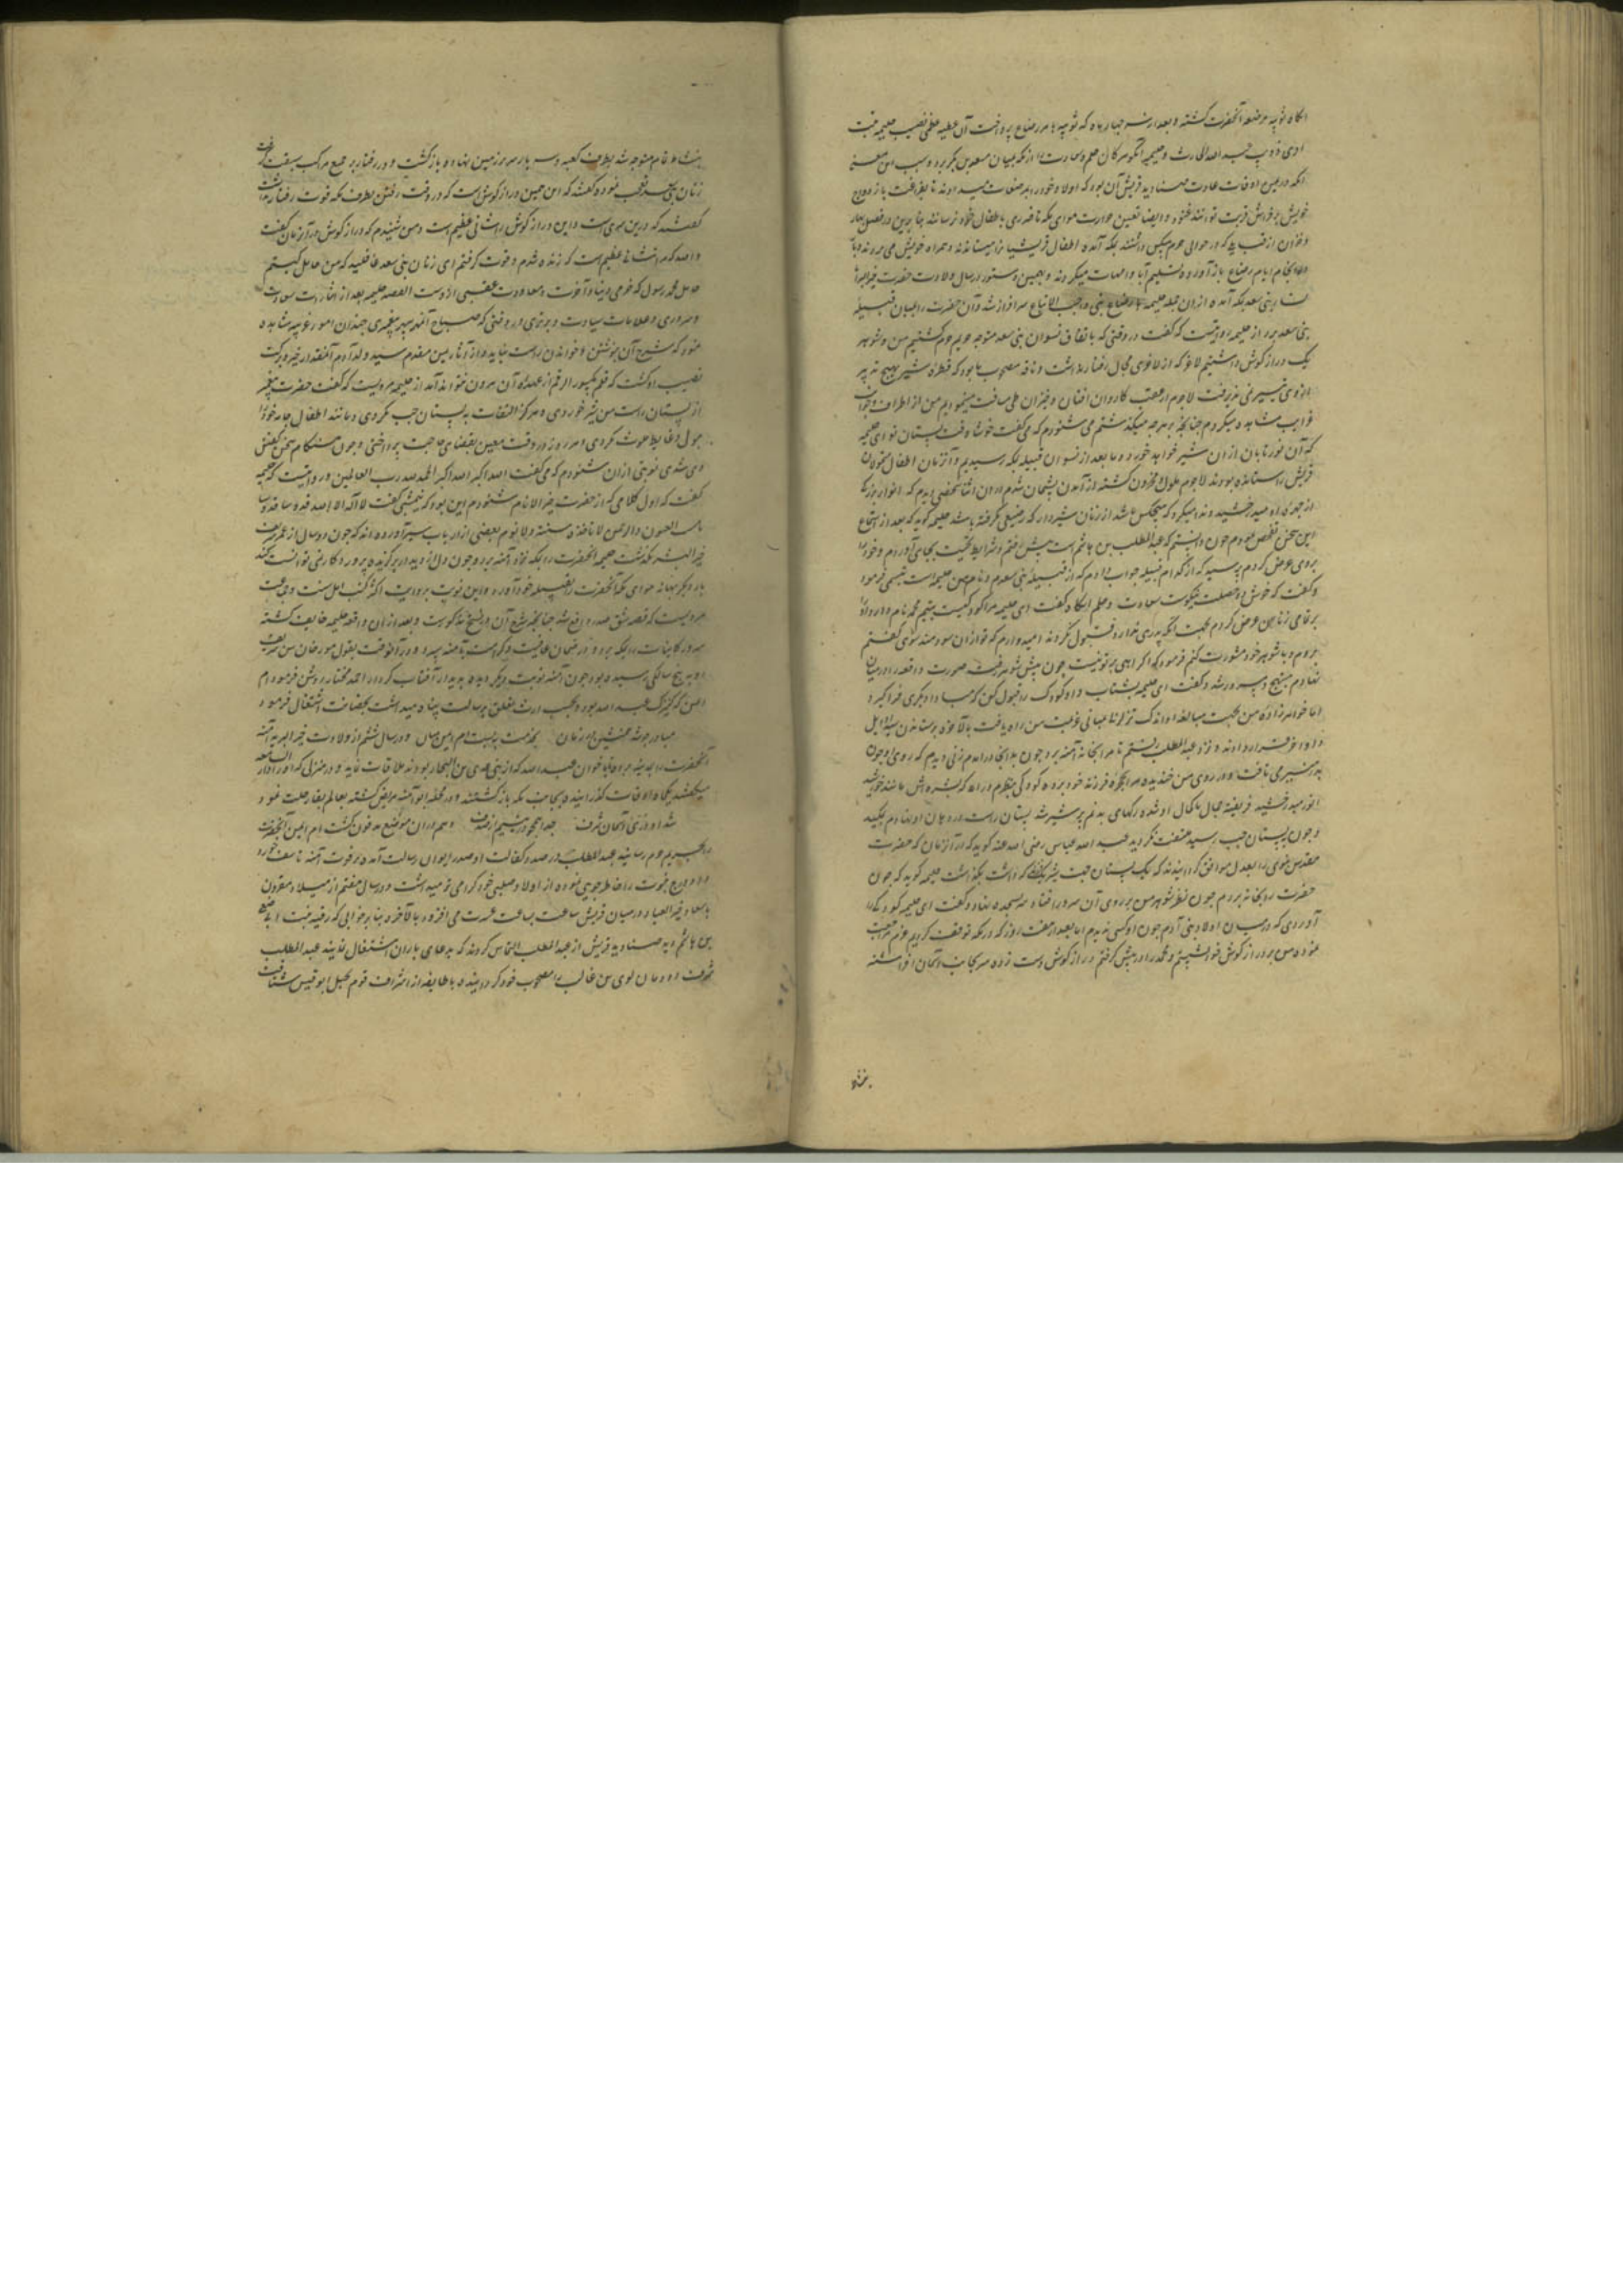 آنگاه ثویبه مرضعه آنحضرت گشته و بعد از سه چهار ماه که ثویبه بامر رضاع پرداخت آن عطیه عظمی نصیب حلیمه بنت
ابی ذویب عبد الله الحارث و حلیمه
آنکه در عین اوقات عادت صنادید قریش آن بود که اولاد خود را بمرضعات میدادند تا بفراغت با ازواج
خویش توانند غنود و ایضا تعفین حرارت هوای مکه تا ضرری باطفال نرسانند بنابرین در فصل بهار
و خزان از قبایلی که در حوالی حرم داشتند بمکه آمده اطفال قریشیا را میستاندند و همراه خویش می بردند و
انجام ایام رضاع باز آورده تسلیم آبا و امهات میکردند و بهمین دستور در سال ولادت حضرت
نساء بنی سعد بمکه آمده از آن جمله حلیمه بارضاع نبی واجب الاتباع سرافراز شد و آن حضرت را بمیان قبیله
بنی سعد برد از حلیمه روایتست که گفت در وقتی که باتفاق نسوان بنی سعد متوجه حریم حرم گشتیم من و شوهر
یک دراز گوش داشتیم لاغر که از لاغری مجال رفتار نداشت و ناقه مصحوب ما بود که قطره شیر بهیچ تدبیر
از وی نمیرفت لاجرم در عقب کاروان افتان و خیزان طی مسافت مینمودیم من از اطراف و جوانب
غرایب مشاهده میکردم چنانچه بر هرچه میگذشتم می شنودم که می گفت خوشا وقت پستان تو ای حلیمه
که آن نور تابان از آن شیر خواهد خورد و ما بعد از نسوان قبیله بمکه رسیدیم و آن زمان اطفال متمولان
قریش را ستانده بودند لاجرم ملول و محزون گشته از آمدن پشیمان شدم در آن اثنا شخصی دیدم که انوار بزرگی
از چهره او میدرخشید و ندا میکرد که هیچکس باشد از زنان شیردار که رضیعی نگرفته باشد حلیمه گوید که بعد از استماع
این سخن تفحص نمودم چون دانستم که عبد المطلب بن هاشم است پیش رفتم و شرایط تحیت بجای آوردم و خود را
بر وی عرض کردم پرسید که از کدام قبیله جواب دادم که از قبیله بنی سعدم و نام من حلیمه است تبسمی فرمود
و گفت که خوش دو خصلت نیکوست سعادت و حلم آنگاه گفت ای حلیمه مرا کودکیست یتیم محمد نام و او را
بر تمامی زنان عرض کردم بجهت آنکه پدری ندارد قبول نکردند امیدوارم که تو از آن سودمند شوی گفتم
بروم و با شوهر خود مشورت کنم فرمود که اکراهی بر تو نیست چون پیش شوهر رفته صورت واقعه را در میان
نهادم مبتهج و مسرور شد و گفت ای حلیمه بشتاب و آن کودک را قبول کن که مبادا دیگری فراگیرد
اما خواهرزاده من بجهت مبالغه
قرار دادند و نزد عبد المطلب رفتم تا مرا بخانه آمنه برد چون بدانجا درآمدم زنی دیدم که روی او چون
بدر منیر می تافت و در روی من خندیده مرا بحجره فرزند خود برد کودکی بنظرم درآمد که بشره اش مانند خورشید
انور میدرخشید فریفته جمال با کمال او شده رگهای بدنم پر شیر شد پستان راست در دهان او نهادم بمکید
و چون به پستان چپ رسید ملتفت نگردید عبد الله عباس رضی الله عنه گوید که در آن زمان که حضرت
مقدس نبوی را بعدل موافق گردانیدند که یک پستان جهت شریکی که داشت بگذاشت حلیمه گوید که چون
حضرت را بخانه بردم چون نظر شوهر من بر روی آن سرور افتاد سر بسجده نهاد و گفت ای حلیمه کودکی را
آوردی که در میان اولاد بنی آدم چون او کسی ندیدم اما بعد از هفت روز که در مکه توقف کردیم عزم مراجعت
نموده من بر دراز گوش خود نشستم و محمد را در پیش گرفتم دراز گوش دست زده سر بجانب آسمان افراشته
بنشاط
بنشاط تمام متوجه شد بطرف کعبه و سه بار سر بر زمین نهاد و باز گشت و در رفتار بر جمیع مراکب سبقت گرفت
زنان بنی سعد تعجب نموده گفتند که این همین دراز گوش است که در وقت رفتن بطرف مکه قوت رفتار نداشت
گفتند که درین سری است و این دراز گوش را شانی عظیم است و من شنیدم که دراز گوش در آن زمان گفت
والله که مرا شانی عظیم است که زنده شدم و قوت گرفتم ای زنان بنی سعد غافلید که من حامل کیستم
حامل محمد رسول که خرمی دنیا و آخرت القصه حلیمه بعد از
و سروری و علامات سیادت و برتری در وقتی که صباح آن مهر سپهر پیغمبری چندان امور غریبه مشاهده
نمود که شرح آن بنوشتن و خواندن راست نیاید و از آثار یمن مقدم سید ولد آدم آنقدر خیر و برکت
نصیب او گشت که قلم مکسور الرقم از عهده آن بیرون نتواند آمد از حلیمه مرویست که گفت حضرت پیغمبر
از پستان راست من شیر خوردی و هرگز التفات به پستان چپ نکردی و مانند اطفال جامه خود را
ببول و غایط ملوث نکردی و هر روز در وقت معین بقضای حاجت پرداختی و چون هنگام سخن گفتن
وی شدی نوبتی از آن شنودم که می گفت الله اکبر الله اکبر الحمد لله رب العالمین و روایتیست که حلیمه
گفت که اول کلامی که از حضرت خیر الانام شنودم این بود که نیمشبی گفت لا اله الا الله قدوسا قدوسا
نامت العیون والرحمن لا تاخذه سنة ولا نوم بعضی از ارباب سیر آورده اند که چون دو سال از عمر شریف
خیر البشر بگذشت حلیمه آنحضرت را بمکه نزد آمنه برد و چون دل از دیدار برگزیده پروردگار نمی توانست کند
بار دیگر ببهانه هوای مکه آنحضرت را بقبیله خود آورد و این نوبت بروایت اکثر کتب اهل سنت و جماعت
مرویست که قصه شق صدر واقع شد چنانچه شرح آن در نسخ مذکورست و بعد از آن واقعه حلیمه خایف گشته
سرور کاینات را بمکه برد و در ضمان عافیت و کرامت بآمنه سپرد و در آنوقت بقول مورخان سن شریف
او به پنج سالگی رسیده بود چون آمنه نوبت دیگر دیده بدیدار آفتاب کردار احمد مختار روشن فرمود ام
ایمن که کنیزک عبد الله بود و بحسب ارث تعلق برسالت پناه میداشت بحضانت اشتغال فرمود
بخدمت و در سال ششم از ولادت خیر البریه آمنه
آنحضرت را بمدینه برد تا با خوان عبد الله که از بنی عدی بن النجار بودند ملاقات نماید و در منزلی که آنرا دار النابغه
میگفتند یکماه اوقات گذرانیده بجانب مکه باز گشتند و در محله ابوا آمنه مریض گشته بعالم بقا رحلت نمود
شد او در آسمان شرف جدا همچو در یتیم از صدف و هم در آن موضع مدفون گشت ام ایمن آنحضرت
را بحریم حرم رسانید عبد المطلب در صدد کفالت او صدر ایوان رسالت آمده بر فوت آمنه تاسف خورد
نبوت را خاطر جویی نموده از اولاد صلبی خود گرامی تر میداشت و در سال هفتم از میلاد مقرون
باسعاد خیر العباد در میان قریش ساعت بساعت عسرت می افزود بالآخره بنابر خوابی که رقیقه بنت ابی صیفی
بن هاشم دید صنادید قریش از عبد المطلب التماس کردند که بدعای باران اشتغال نمایند عبد المطلب
شرف دودمان لوی بن غالب را مصحوب خود گردانیده با طایفه از اشراف قوم بجبل ابو قبیس شتافت